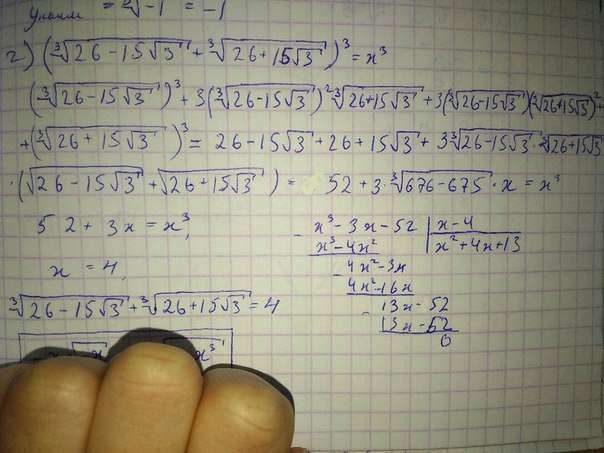 = ∛-1 = -1
2) (∛(26-15√3) + ∛(26+15√3))³ = x³
(∛(26-15√3))³ + 3(∛(26-15√3))² ∛(26+15√3) + 3(∛(26-15√3))(∛(26+15√3))² +
+(∛(26+15√3))³ = 26-15√3 + 26 + 15√3 + 3∛(26-15√3) · ∛(26+15√3)
·(√(26-15√3) + √(26+15√3)) = 52 + 3·∛(676-675) · x = x³
52 + 3x = x³,
x = 4,
∛(26-15√3) + ∛(26+15√3) = 4
x³ - 3x - 52 | x - 4
- x³ - 4x² | x² + 4x + 13
4x² - 3x
- 4x² - 16x
13x - 52
- 13x - 52
0